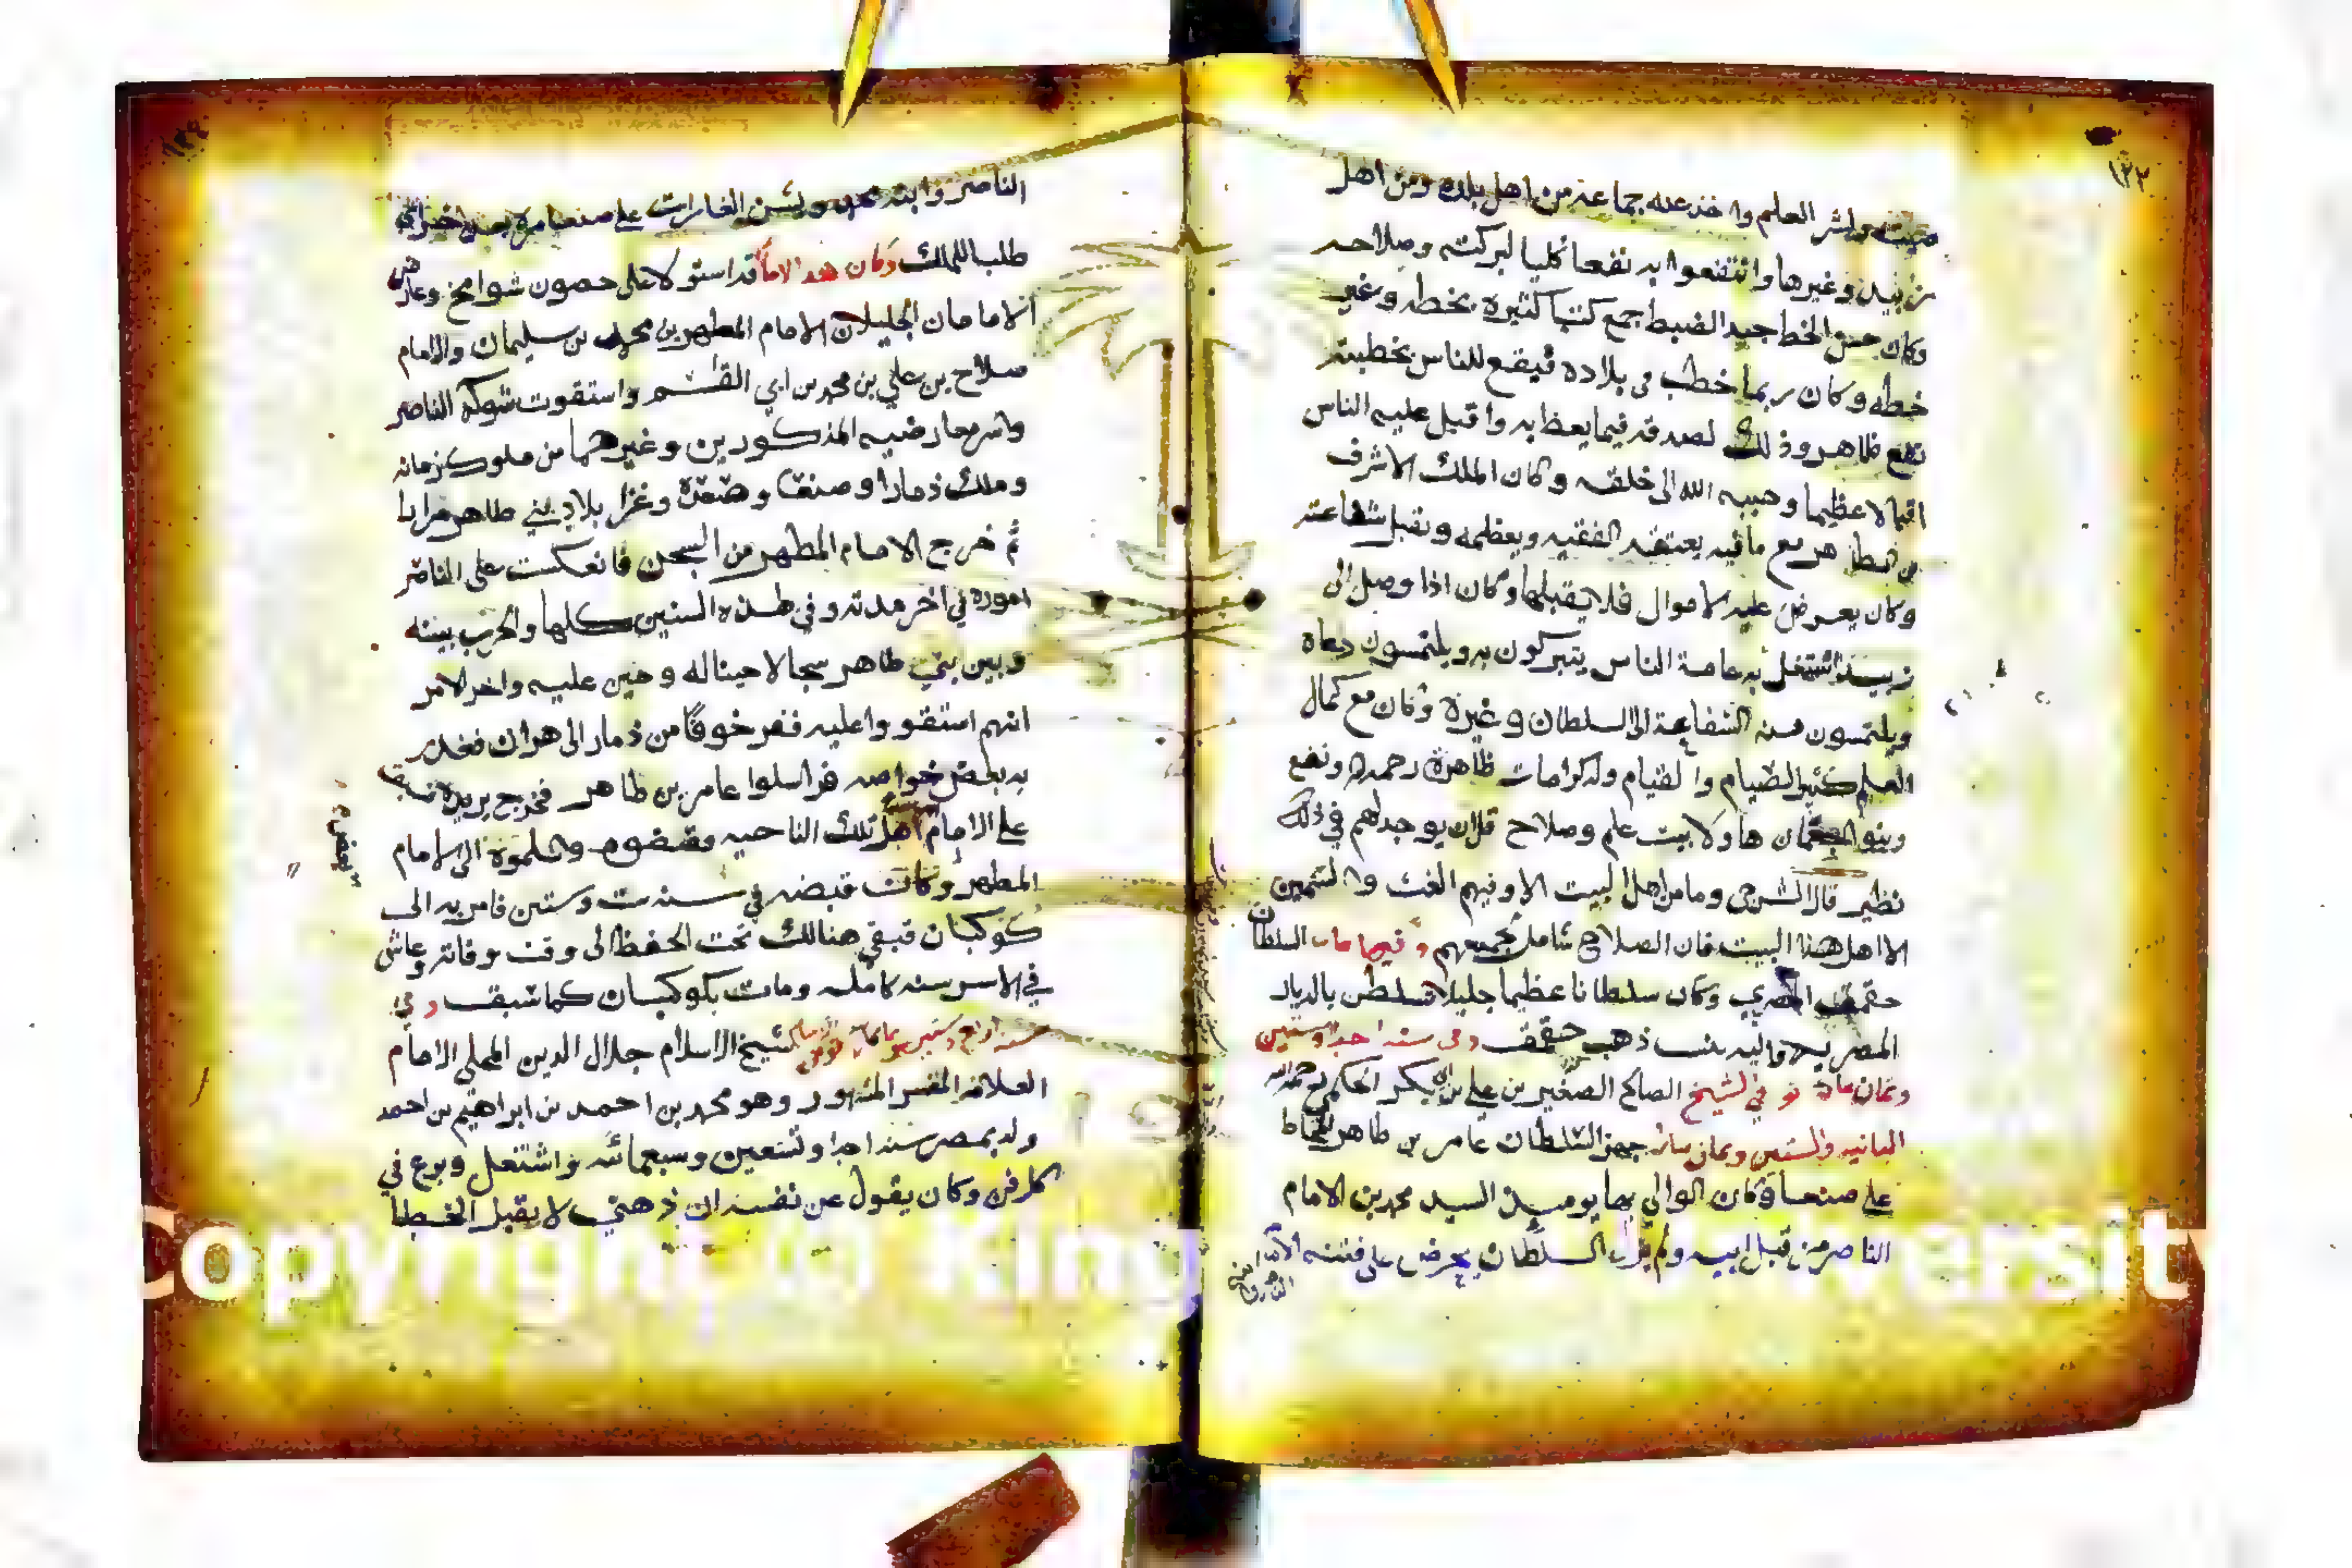 ١٢٣
صيته ونشر العلم واخذ عنه جماعة من اهل بلده ومن اهل
زبيد وغيرها وانتفعوا به نفعا كليا لبركته وصلاحه
وكان حسن الخط جيد الضبط جمع كتبا كثيرة بخطه وغير
خطه وكان ربما خطب في بلاده فيقع للناس بخطبته
نفع ظاهر وذلك لصدقه فيما يعظ به واقبل عليه الناس
اقبالا عظيما وحببه الله الى خلقه وكان الملك الاشرف
بن الظاهر مع ما فيه يعتقد الفقيه ويعظمه ويقبل شفاعته
وكان يعرض عليه الاموال فلا يقبلها وكان اذا وصل الى
زبيد اشتغل به عامة الناس يتبركون به ويلتمسون دعاه
ويلتمسون منه الشفاعة الى السلطان وغيره وكان مع كمال
العلم كثير الصيام والقيام وله كرامات ظاهرة رحمه الله ونفع
وبنوا جعمان هاولا بيت علم وصلاح قل ان يوجد لهم في ذلك
نظير قال الشرجي وما من اهل البيت الا وفيهم الغث والسمين
الا اهل هذا البيت فان الصلاح شامل لجميعهم وفيها مات السلطان
جقمق المصري وكان سلطانا عظيما جليلا تسلطن بالديار
المصريه واليه ينسب ذهب جقمق وفي سنه احدا وستين
وثمان مائة توفي الشيخ الصالح الصغير بن علي بن ابي بكر الحكمي رحمه الله
الثانيه والستين وثمان مائة جهز السلطان عامر بن طاهر للمحاط
على صنعا وكان الوالي بها يوميذ السيد محمد بن الامام
الناصر من قبل ابيه ولم يزل السلطان يحرض على فتنه الامام
الناصر وابنه محمد ويشن الغارات على صنعا مرة بعد اخرى
طلبا للملك وكان هذا الامام قد استولا على حصون شوامخ وعارض
الامامان الجليلان الامام المطهر بن محمد بن سليمان والامام
صلاح بن علي بن محمد بن ابي القسم واستقوت شوكة الناصر
واسر معارضيه المذكورين وغيرهما من ملوك زمانه
وملك ذمارا وصنعا وصعدة وغزا بلاد بني طاهر مرارا
ثم خرج الامام المطهر من السجن فانعكست على الناصر
اموره في اخر مدته وفي هذه السنين كلها والحرب بينه
وبين بني طاهر سجالا حينا له وحين عليه واخر الامر
انهم استقووا عليه ففر خوفا من ذمار الى هران فغدر
به بعض خواصه فراسلوا عامر بن طاهر فخرج يريده
على الامام اهل تلك الناحيه وقبضوه وسلموة الى الامام
المطهر وكان قبضه في سنة ست وستين فامر به الى
كوكبان فبقي هنالك تحت الحفظ الى وقت وفاته وعاش
في الاسر سنه كامله ومات بكوكبان كما سبق وفي
سنة اربع وستين وثمانمائة توفي شيخ الاسلام جلال الدين المحلي الامام
العلامة المفسر المشهور وهو محمد بن احمد بن ابراهيم بن احمد
ولد بمصر سنة احدا وتسعين وسبعمائة واشتغل وبرع في
كل فن وكان يقول عن نفسه ان ذهني لا يقبل الخطا